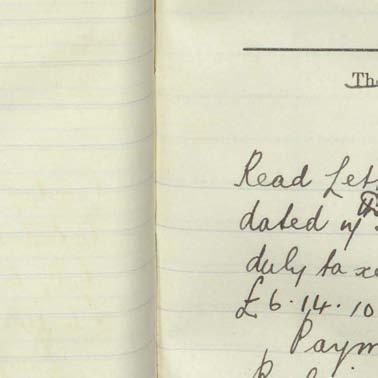 The
Read Lett
dated
duly taxe
£6.14.10
Paym